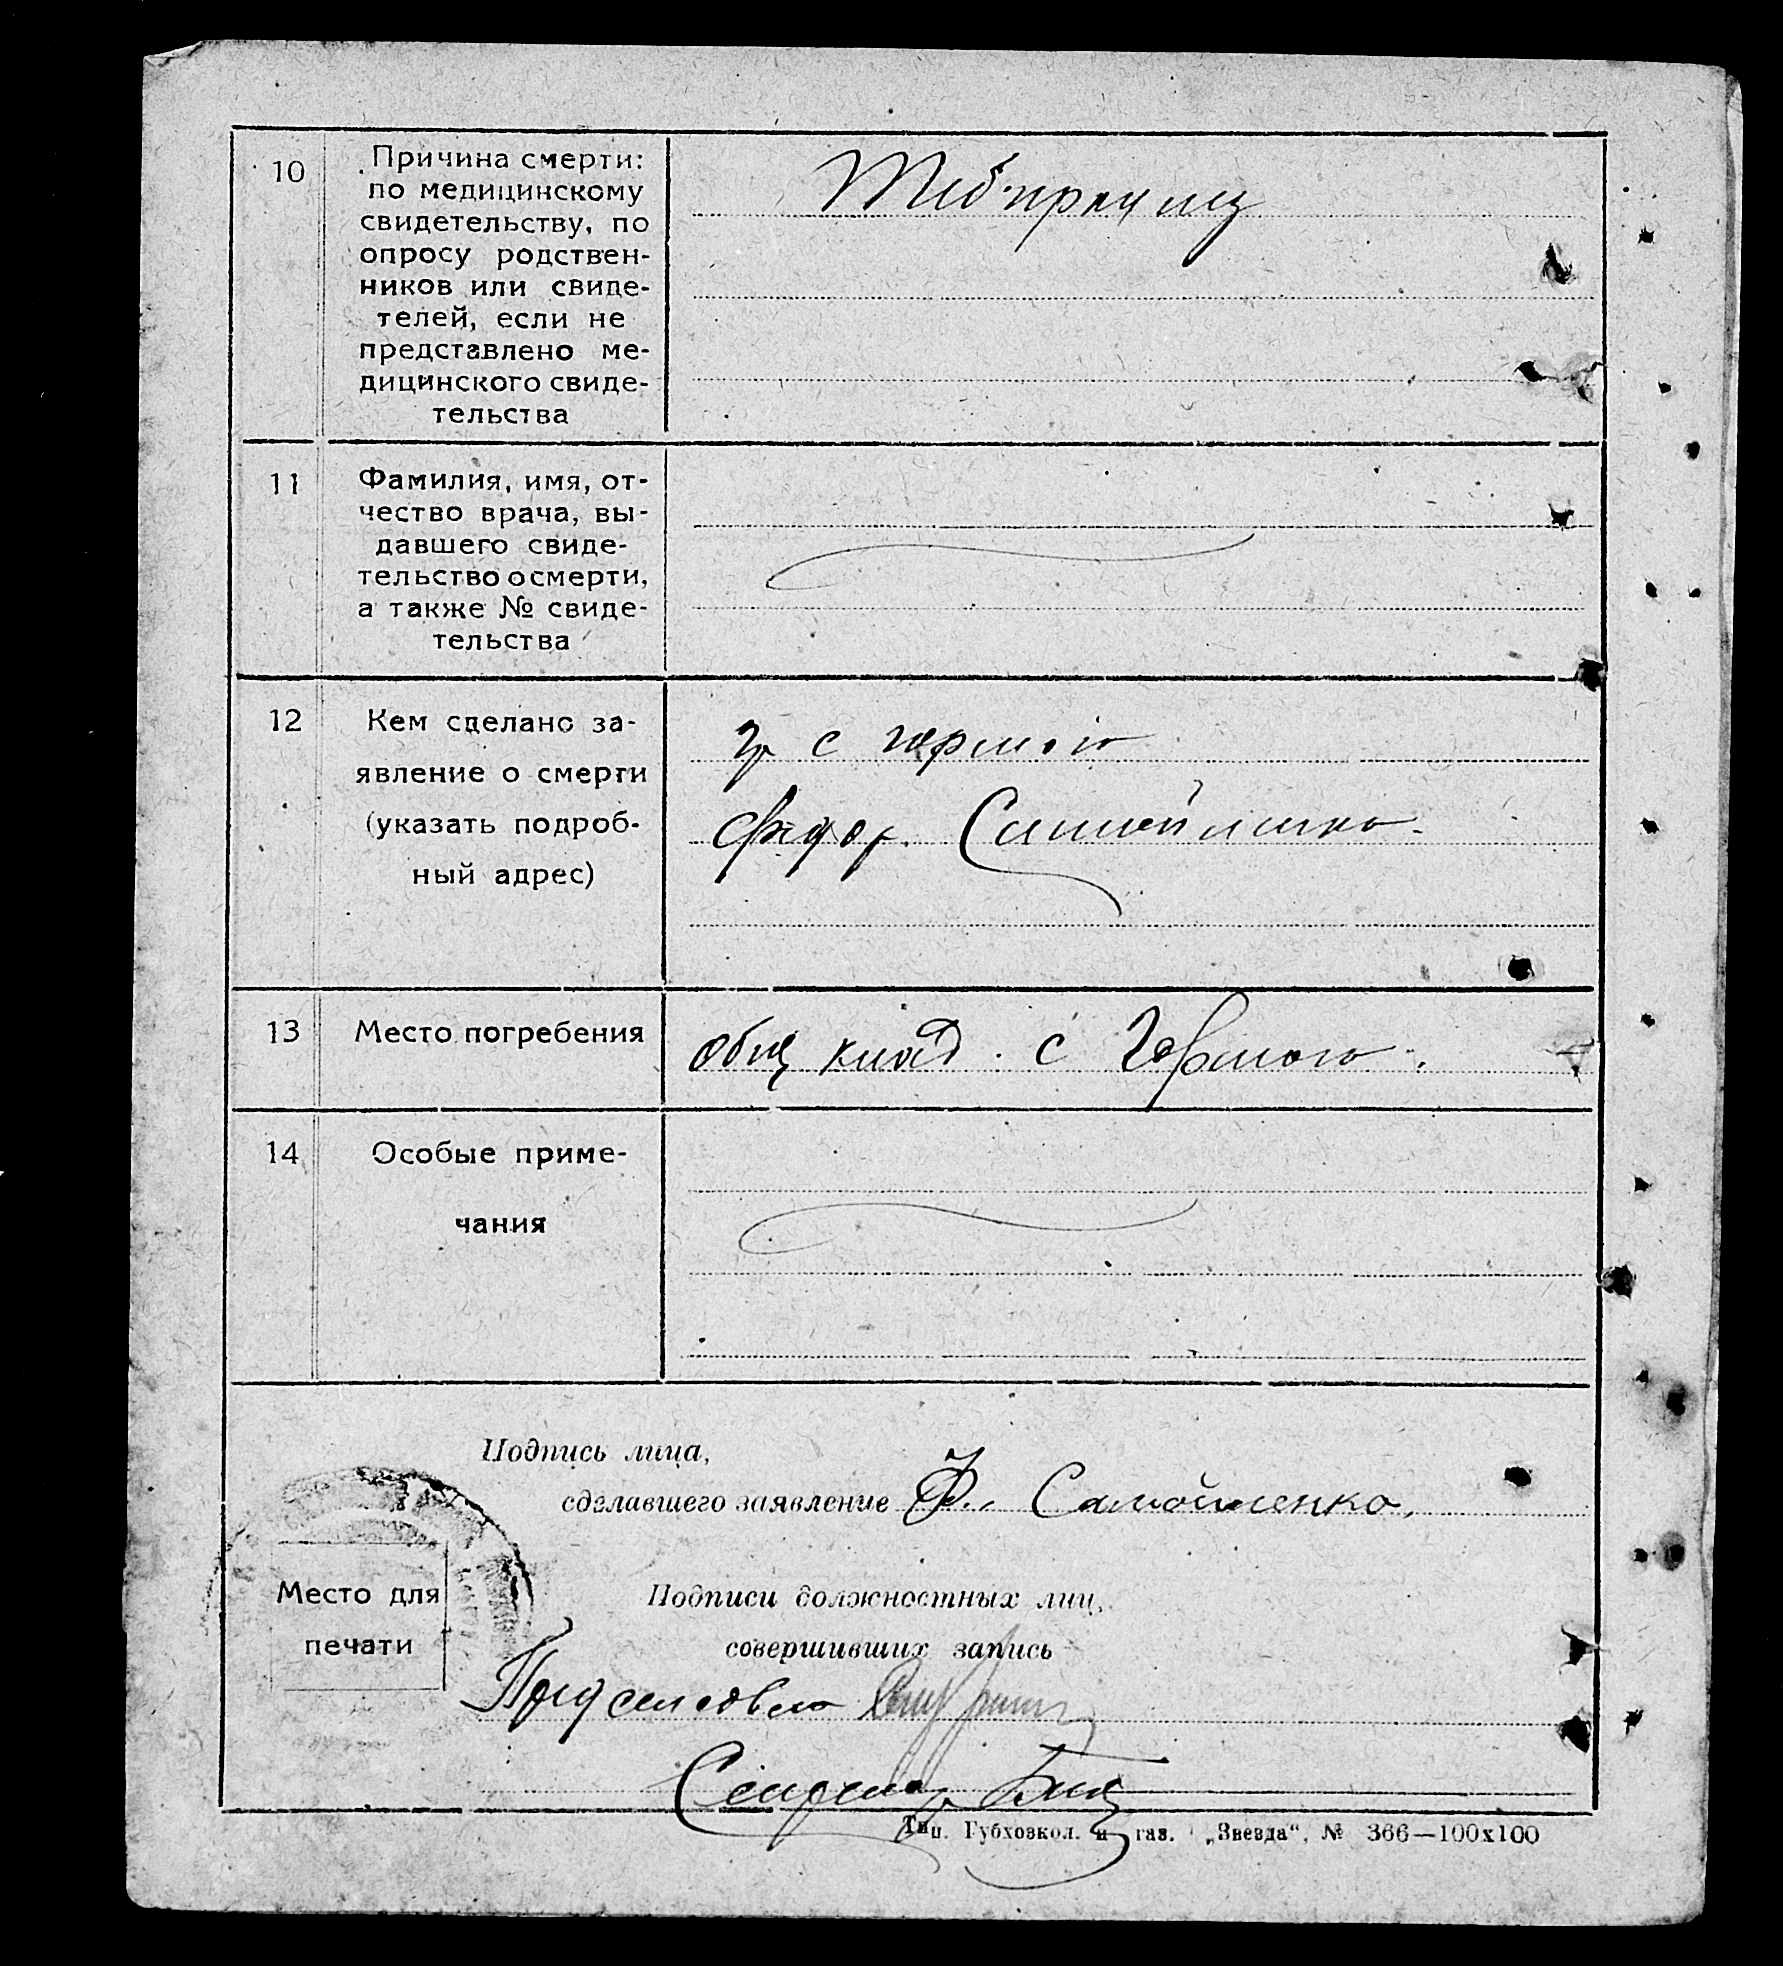 10
Причина смерти:
по медицинскому
свидетельству, по
опросу родствен-
ников или свиде-
телей, если не
представлено ме-
дицинского свиде-
тельства
11
Фамилия, имя, от-
чество врача, вы-
давшего свиде-
тельство о смерти,
а также № свиде-
тельства
12
Кем сделано за-
явление о смерти
(указать подроб-
ный адрес)
гр с
Федор. Самойленко.
13
Место погребения
общ клад. с
14
Особые приме-
чания
Подпись лица,
сделавшего заявление Ф. Самойленко.
Место для
печати
Подписи должностных лиц,
совершивших запись
Пред сельсовета
Секретар
Тип. Губхозкол. и газ. „Звезда“, № 366—100х100